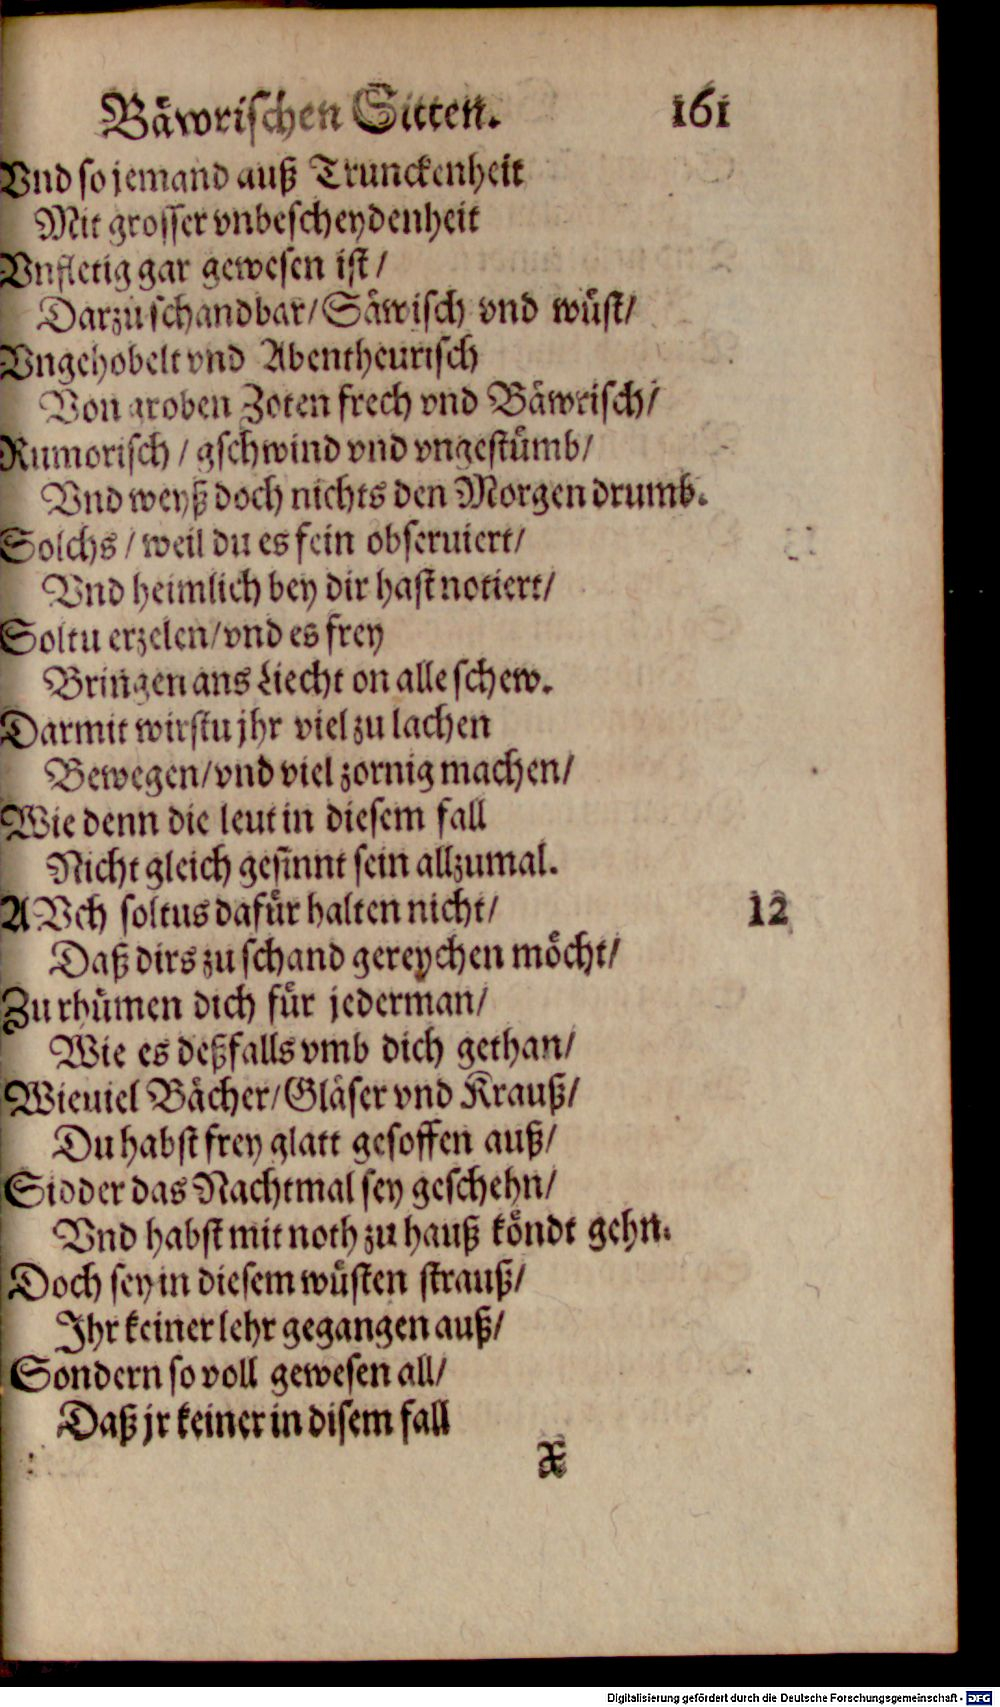 Bäwrischen Sitten. 161
Vnd so jemand auß Trunckenheit
Mit grosser vnbescheydenheit
Vnfletig gar gewesen ist/
Darzu schandbar/ Säwisch vnd wüst/
Vngehobelt vnd Abentheurisch
Von groben Zoten frech vnd Bäwrisch/
Rumorisch / gschwind vnd vngestümb/
Vnd weyß doch nichts den Morgen drumb.
Solchs / weil du es fein obseruiert/
Vnd heimlich bey dir hast notiert/
Soltu erzelen/ vnd es frey
Bringen ans Liecht on alle schew.
Darmit wirstu jhr viel zu lachen
Bewegen/ vnd viel zornig machen/
Wie denn die leut in diesem fall
Nicht gleich gesinnt sein allzumal.
AVch soltus dafür halten nicht/ 12
Daß dirs zu schand gereychen möcht/
Zu rhümen dich für jederman/
Wie es deßfalls vmb dich gethan/
Wieuiel Bächer/ Gläser vnd Krauß/
Du habst frey glatt gesoffen auß/
Sidder das Nachtmal sey geschehn/
Vnd habst mit noth zu hauß köndt gehn.
Doch sey in diesem wüsten strauß/
Jhr keiner lehr gegangen auß/
Sondern so voll gewesen all/
Daß jr keiner in disem fall
X
Digitalisierung gefördert durch die Deutsche Forschungsgemeinschaft - DFG